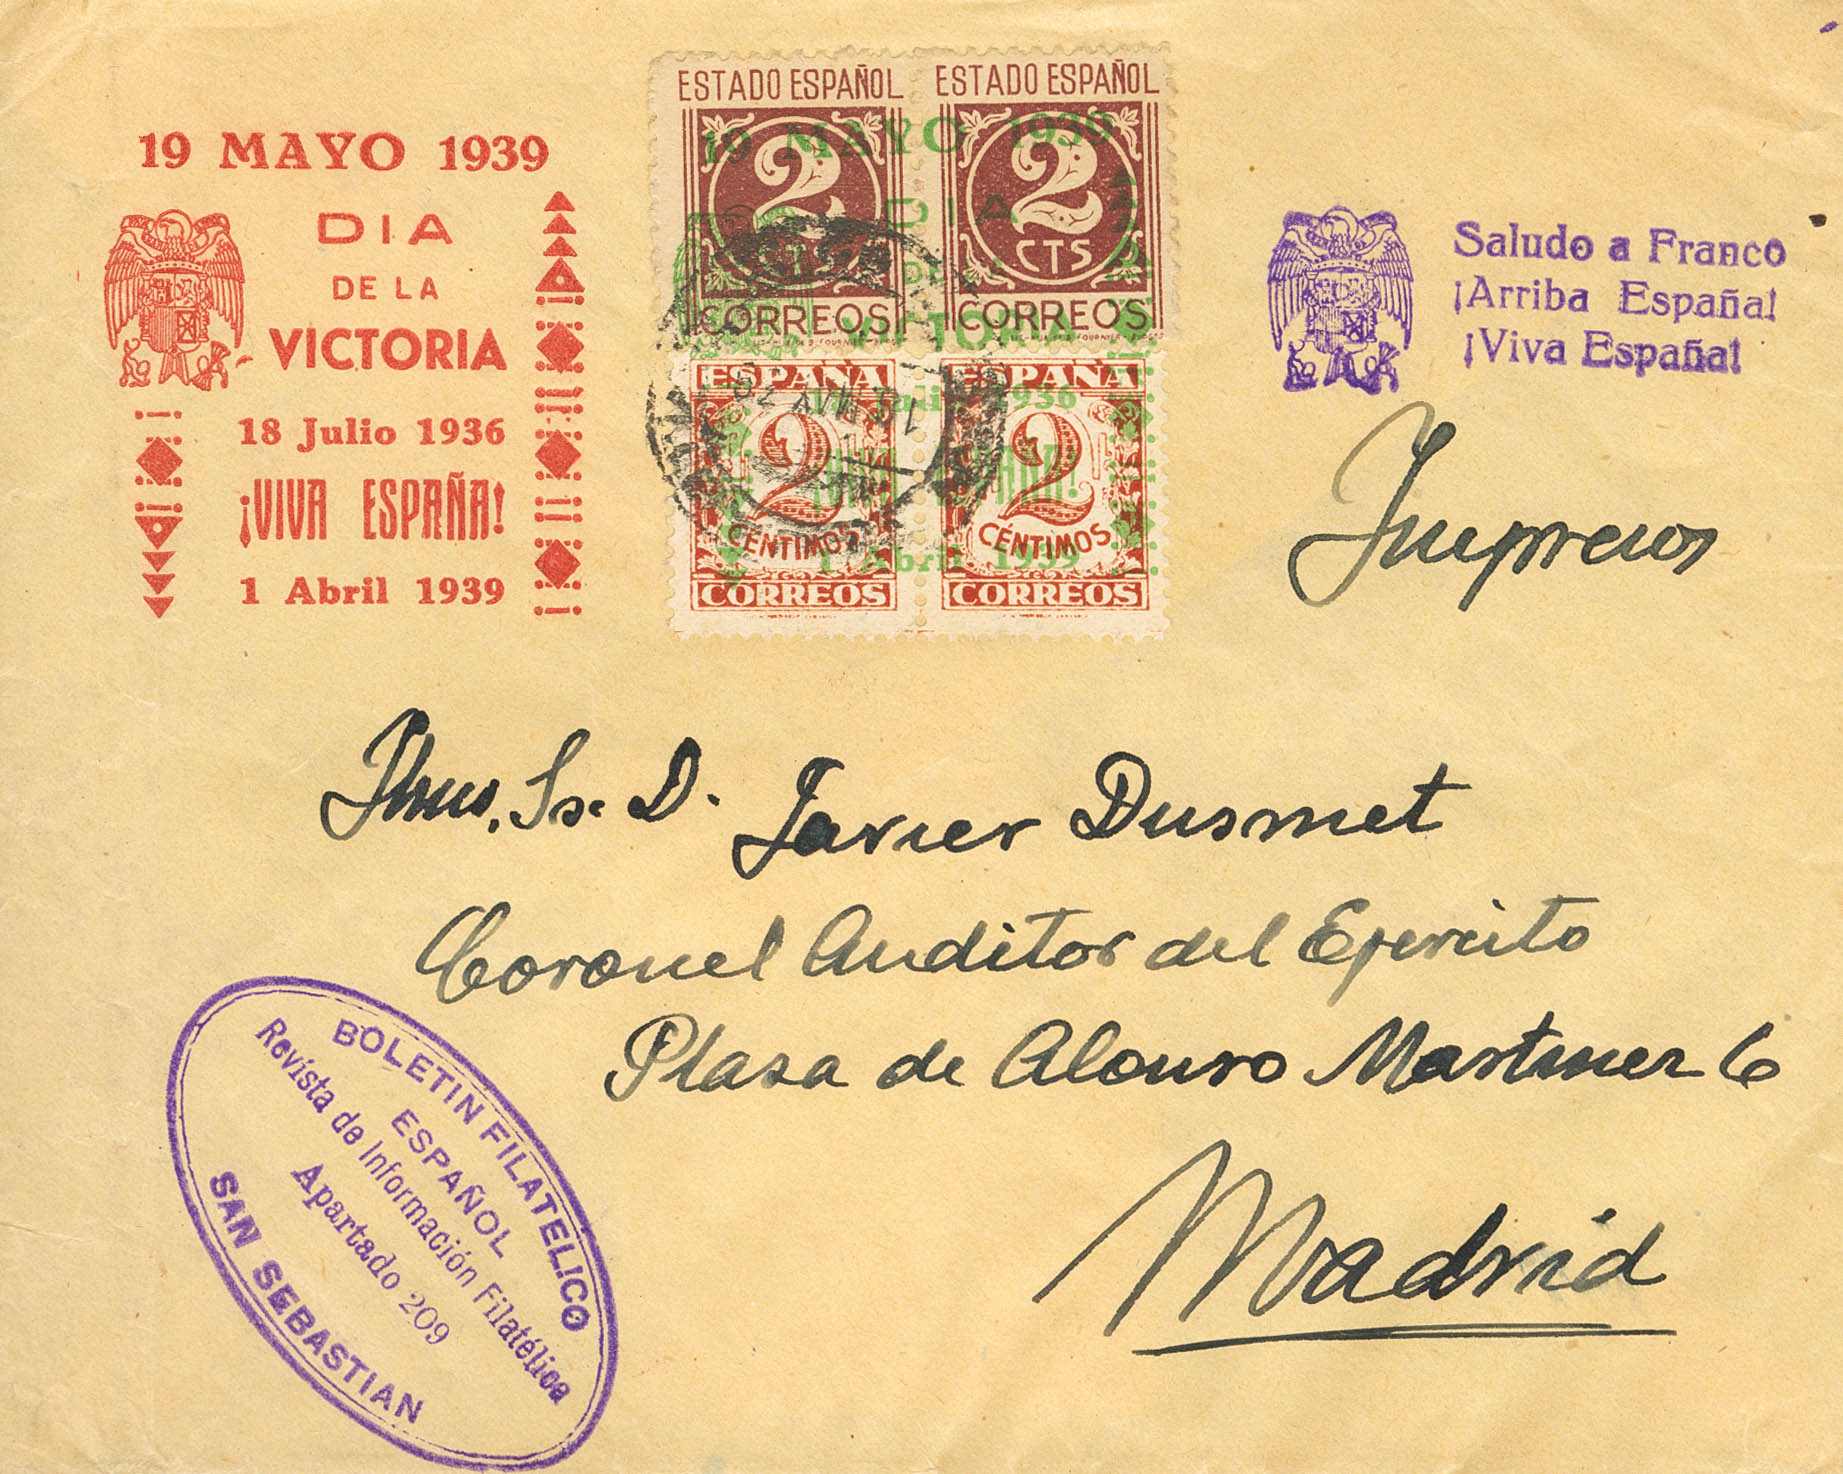 19 MAYO 1939
DIA
DE LA
VICTORIA
18 Julio 1936
¡VIVA ESPAÑA!
1 Abril 1939
ESTADO ESPAÑOL
2
CTS
CORREOS
ESTADO ESPAÑOL
2
CTS
CORREOS
ESPAÑA
2
CÉNTIMOS
CORREOS
ESPAÑA
2
CÉNTIMOS
CORREOS
19 MAYO 1939
DIA
1936
1 Abril 1939
Saludo a Franco
¡Arriba España!
¡Viva España!
Impresos
Ilmo. Sr. D. Javier Dusmet
Coronel Auditor del Ejercito
Plaza de Alonso Martinez 6
Madrid
BOLETIN FILATELICO
ESPAÑOL
Revista de Información Filatélica
Apartado 209
SAN SEBASTIAN